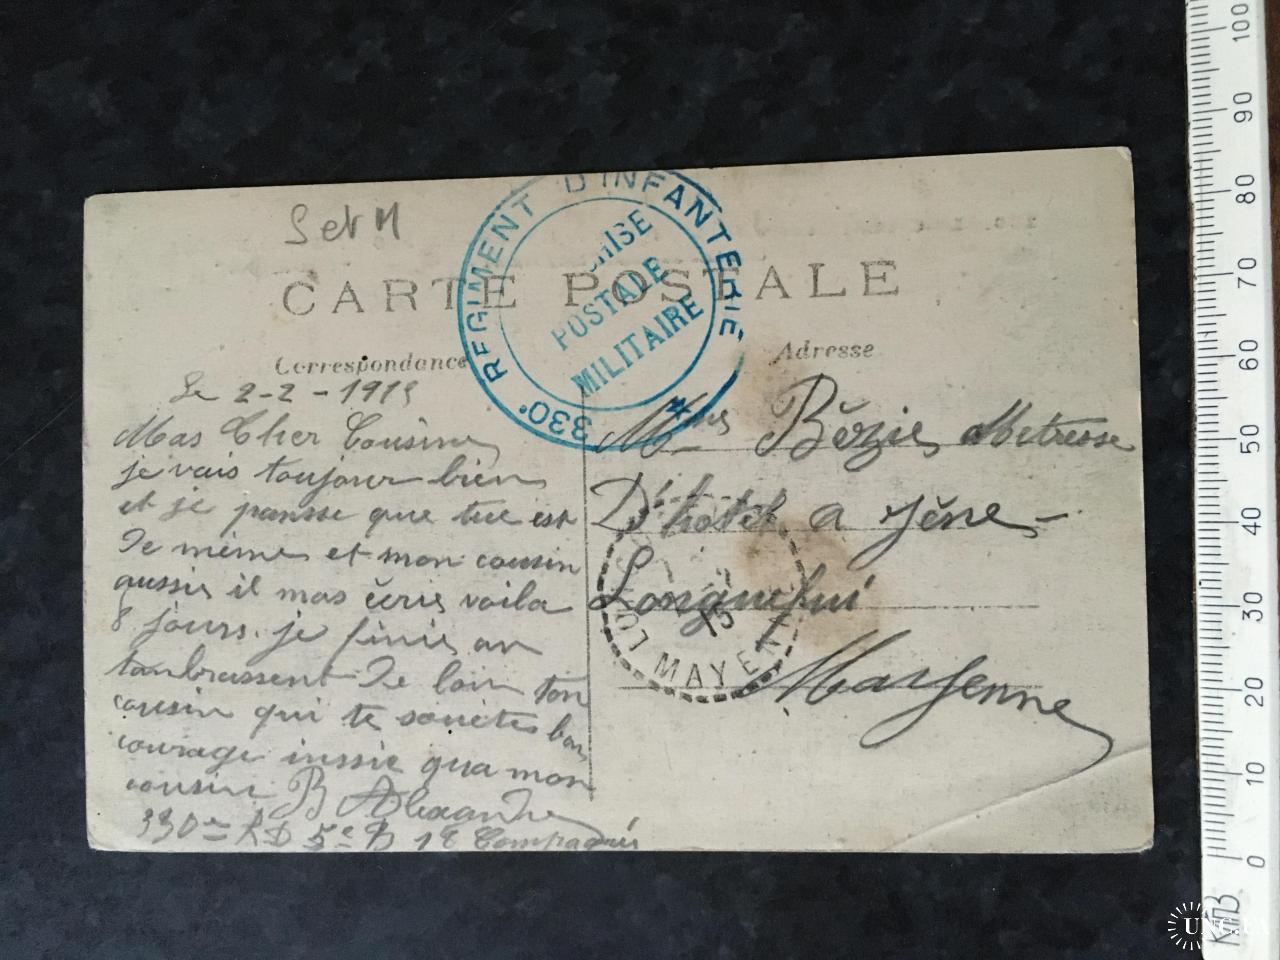 S et M
CARTE POSTALE
330e REGIMENT D'INFANTERIE
POSTALE
MILITAIRE
Correspondance
Adresse
Le 2-2-1915
Mas Cher Cousine
je vais toujour bien
et je pansse que tue est
De mème et mon cousin
aussie il mas écris voila
8 jours. je finis an
tanbrassent De loin ton
cousin qui te souètes bon
courage inssie qua mon
cousin B Alexandre
330e RD 5e B 18 Compagnie
Mme Bézie Metresse
D'hotel a jéne
Longuefui
Mayenne
MAYENNE
15
0 10 20 30 40 50 60 70 80 90 100
КПВ
UNC.UA